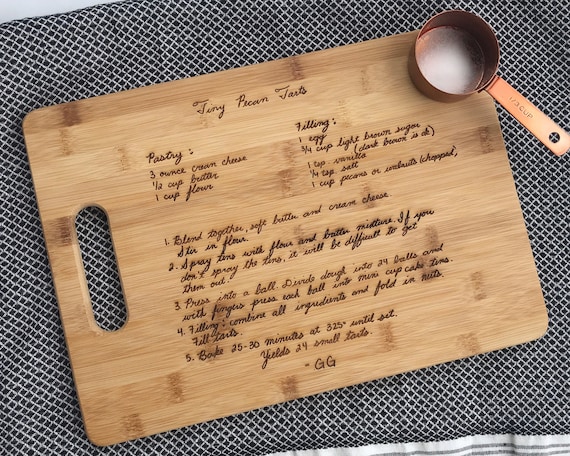 Tiny Pecan Tarts
Pastry:
3 ounce cream cheese
1/2 cup butter
1 cup flour
Filling:
1 egg
3/4 cup light brown sugar
(dark brown is ok)
1 tsp. vanilla
1/4 tsp. salt
1 cup pecans or walnuts (chopped)
1. Blend together, soft butter and cream cheese.
Stir in flour.
2. Spray tins with flour and batter mixture. If you
don't spray the tins, it will be difficult to get
them out.
3. Press into a ball. Divide dough into 24 balls and
with fingers press each ball into mini cup cake tins.
4. Filling: combine all ingredients and fold in nuts.
Fill tarts.
5. Bake 25-30 minutes at 325° until set.
Yields 24 small tarts.
- GG
1/3 CUP